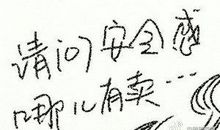 请问安全感
哪儿有卖…